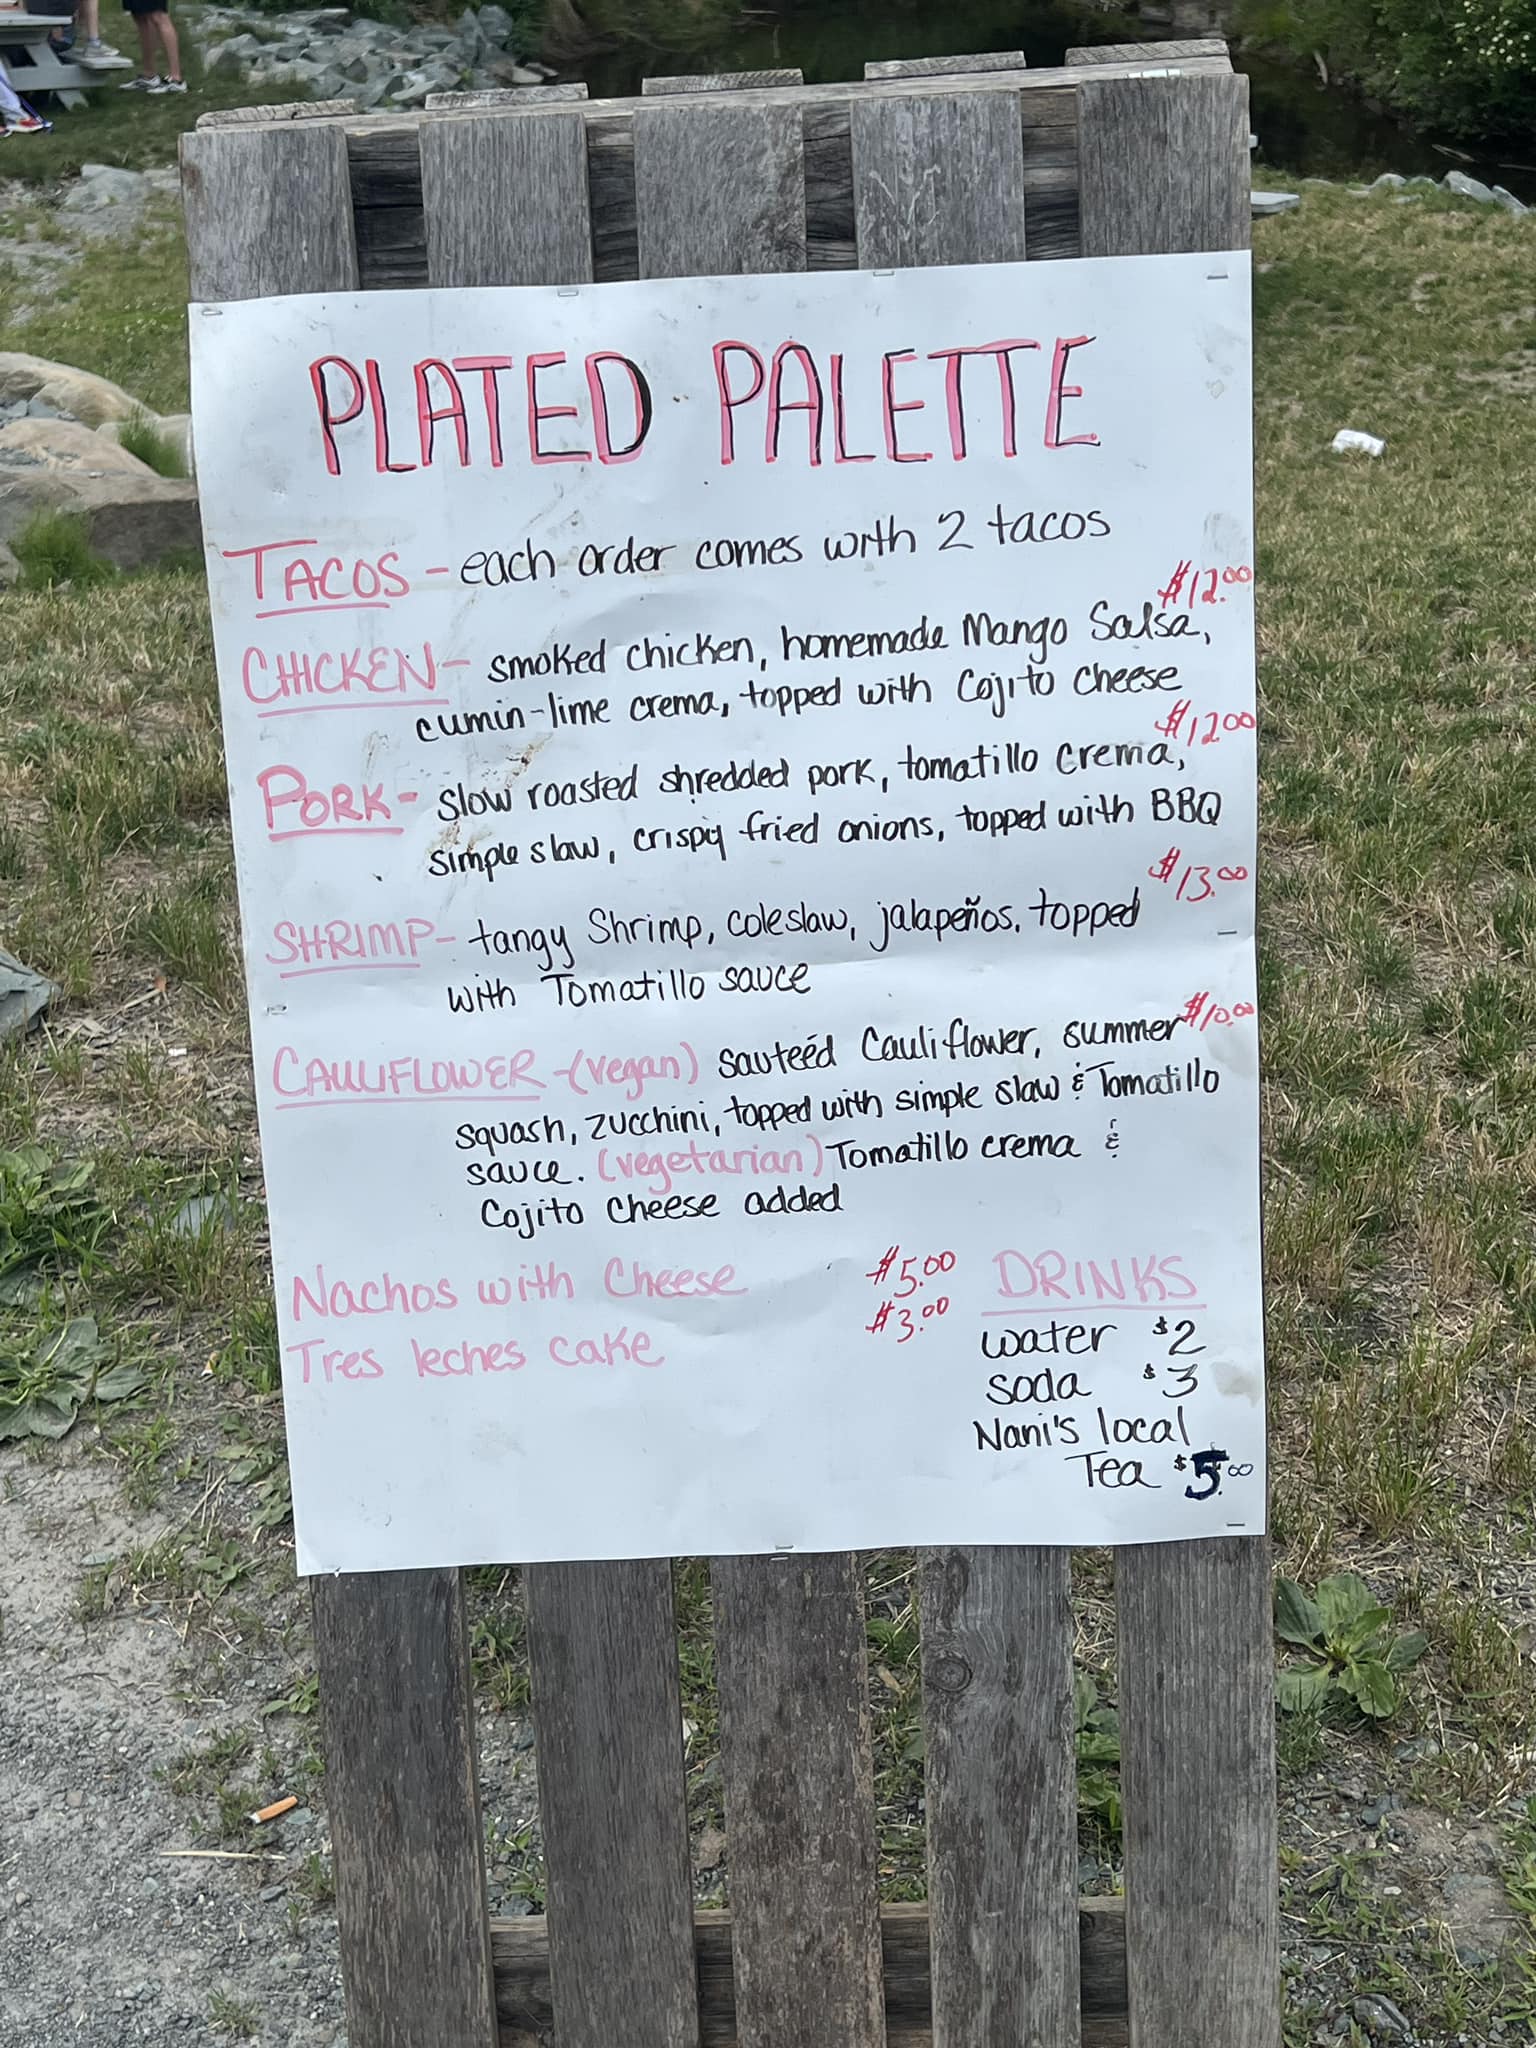 PLATED PALETTE
TACOS - each order comes with 2 tacos
$12.00
CHICKEN - smoked chicken, homemade Mango Salsa,
cumin-lime crema, topped with Cojito cheese
$12.00
PORK - slow roasted shredded pork, tomatillo crema,
simple slaw, crispy fried onions, topped with BBQ
$13.00
SHRIMP - tangy Shrimp, coleslaw, jalapeños, topped
with Tomatillo sauce
CAULIFLOWER - (vegan) sauteéd Cauliflower, summer $10.00
squash, zucchini, topped with simple slaw & Tomatillo
sauce. (vegetarian) Tomatillo crema &
Cojito cheese added
Nachos with Cheese $5.00
Tres leches cake $3.00
DRINKS
water $2
soda $3
Nani's local
Tea $5.00